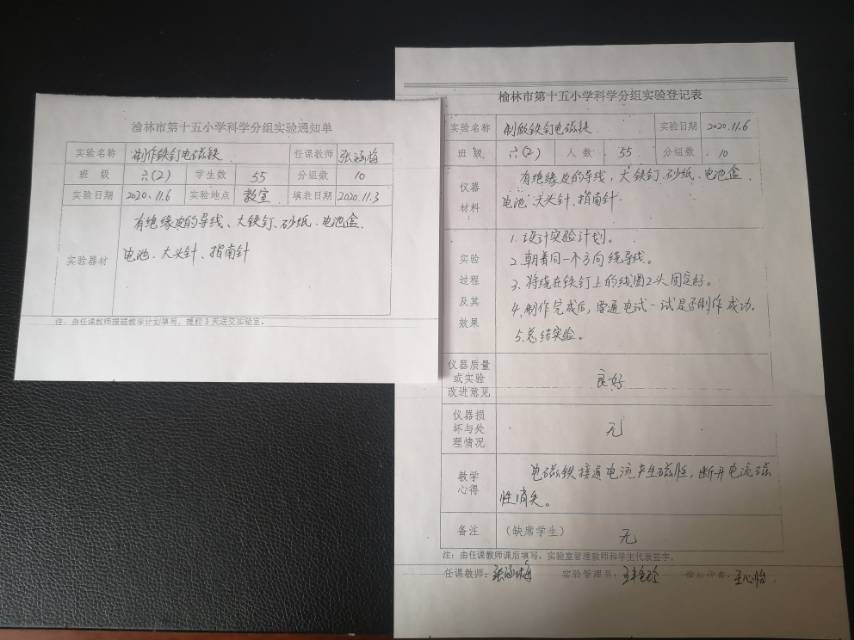 榆林市第十五小学科学分组实验通知单
实验名称 制作铁钉电磁铁 任课教师
班 级 六(2) 学生数 55 分组数 10
实验日期 2020.11.6 实验地点 教室 填表日期 2020.11.3
实验器材
有绝缘皮的导线、大铁钉、砂纸、电池盒、
电池、大头针、指南针
注:由任课教师根据教学计划填写,提前3天送交实验室。
榆林市第十五小学科学分组实验登记表
实验名称 制做铁钉电磁铁 实验日期 2020.11.6
班 级 六(2) 人 数 55 分组数 10
仪器
材料
有绝缘皮的导线,大铁钉、砂纸、电池盒
电池、大头针、指南针
实验
过程
及其
效果
1.设计实验计划。
2.朝着同一个方向绕导线。
3.将绕在铁钉上的线圈2头固定好。
4.制作完成后,要通电试一试是否制作成功。
5.总结实验。
仪器质量
或实验
改进意见
良好
仪器损
坏与处
理情况
无
教学
心得
电磁铁接通电流产生磁性,断开电流磁
性消失。
备注 (缺席学生) 无
注:由任课教师课后填写,实验室管理教师和学生代表签字。
任课教师: 实验管理员: 王心怡